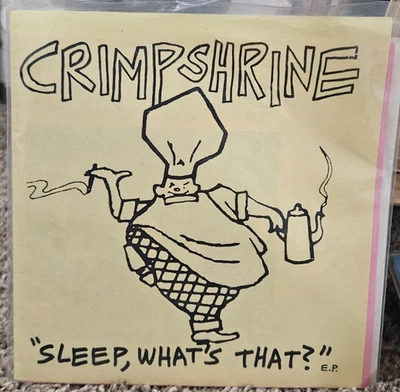 CRIMPSHRINE
"SLEEP, WHAT'S THAT?" E.P.